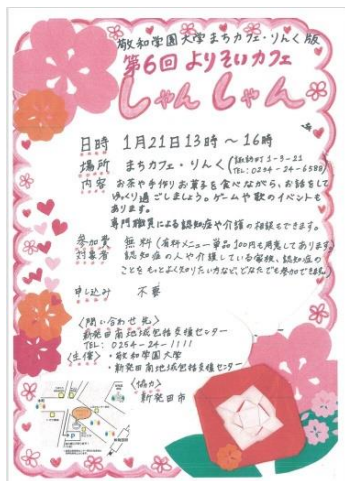 敬和学園大学まちカフェ・りんく版
第6回 よりそいカフェ
しゃんしゃん
日時 1月21日13時～16時
場所 まちカフェ・りんく(諏訪町1-3-21
TEL:0254-24-6588)
内容 お茶や手作りお菓子を食べながら、お話をして
ゆっくり過ごしましょう。ゲームや歌のイベントも
あります。
専門職員による認知症や介護の相談もできます。
参加費 無料(有料メニュー単品100円も用意してあります)
対象者 認知症の人や介護している家族、認知症の
ことをもっとよく知りたい方など、どなたでも参加できます。
申し込み 不要
〈問い合わせ先〉
新発田南地域包括支援センター
TEL: 0254-24-1111
〈主催〉・敬和学園大学
・新発田南地域包括支援センター
〈協力〉
新発田市
P